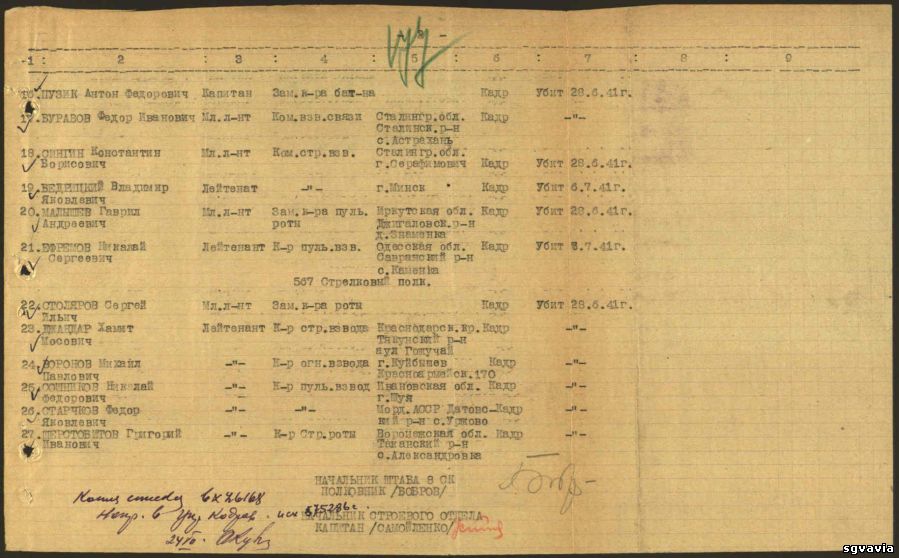 -1: 2 : 3 : 4 : 5 : 6 : 7 : 8 : 9
16. ПУЗИК Антон Федорович Капитан Зам. к-ра бат-на Кадр Убит 28.6.41г.
17. БУРАВОВ Федор Иванович Мл.л-нт Ком.взв.связи Сталингр.обл. Кадр -"-
Сталинск.р-н
с.Астрахань
18. СИНГИН Константин Мл.л-нт Ком.стр.взв. Сталингр.обл.
Борисович г.Серафимович Кадр Убит 28.6.41г.
19. ВЕДРИЦКИЙ Владимир Лейтенат -"- г.Минск Кадр Убит 6.7.41г.
Яковлевич
20. МАЛЫШЕВ Гаврил Мл.л-нт Зам.к-ра пуль. Иркутская обл. Кадр Убит 28.6.41г.
Андреевич роты Джигаловск.р-н
д.Знаменка
21. ЕФРЕМОВ Николай Лейтенант К-р пуль.взв. Одесская обл. Кадр Убит 3.7.41г.
Сергеевич Савранский р-н
с.Каменка
567 Стрелковый полк.
22. СТОЛЯРОВ Сергей Мл.л-нт Зам.к-ра роты Кадр Убит 28.6.41г.
Ильич
23. ДЖАНДАР Хамит Лейтенант К-р стр.взвода Краснодарск.кр. Кадр -"-
Мосович р-н
аул
24. ВОРОНОВ Михаил -"- К-р огн.взвода г.Куйбышев Кадр -"-
Павлович Красноармейск.170
25. СОШНИКОВ Николай -"- К-р пуль.взвод Ивановская обл. Кадр -"-
Федорович г.Шуя
26. СТАРЧКОВ Федор -"- -"- Морд.АССР Датовс- Кадр -"-
Яковлевич кий р-н с.Урково
27. ШЕРСТОБИТОВ Григорий -"- К-р Стр.роты Воронежская обл. Кадр -"-
Иванович р-н
с.Александровка
НАЧАЛЬНИК ШТАБА 8 СК
ПОЛКОВНИК /БОБРОВ/
НАЧАЛЬНИК СТРОЕВОГО ОТДЕЛА
КАПИТАН /САМОЙЛЕНКО/
Копия списка вх 26168
Напр. в упр Кадров исх
sgvavia